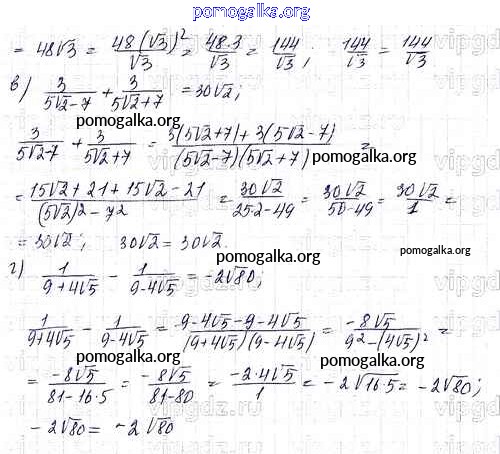 pomogalka.org
= 48√3 = 48(√3)²/√3 = 48·3/√3 = 144/√3 ; 144/√3 = 144/√3
в) 3/(5√2-7) + 3/(5√2+7) = 30√2;
pomogalka.org
3/(5√2-7) + 3/(5√2+7) = (3(5√2+7)+3(5√2-7))/((5√2-7)(5√2+7)) =
pomogalka.org
= (15√2+21+15√2-21)/((5√2)²-7²) = 30√2/(25·2-49) = 30√2/(50-49) = 30√2/1 =
pomogalka.org
= 30√2; 30√2 = 30√2.
pomogalka.org
г) 1/(9+4√5) - 1/(9-4√5) = -2√80;
pomogalka.org
1/(9+4√5) - 1/(9-4√5) = (9-4√5-9-4√5)/((9+4√5)(9-4√5)) = -8√5/(9²-(4√5)²) =
pomogalka.org
pomogalka.org
= -8√5/(81-16·5) = -8√5/(81-80) = -2·4√5/1 = -2√(16·5) = -2√80;
pomogalka.org
-2√80 = -2√80
pomogalka.org